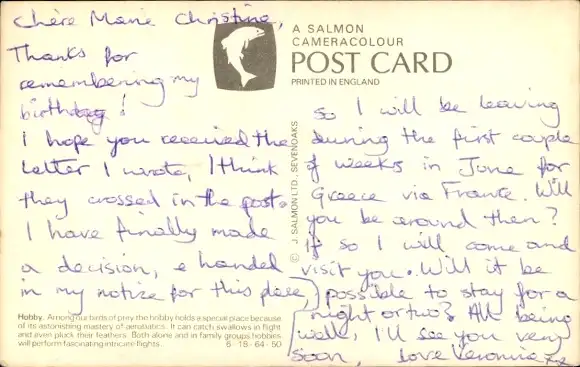 Chère Marie Christine,
Thanks for
remembering my
birthday!
I hope you received the
letter I wrote, I think
they crossed in the post.
I have finally made
a decision, & handed
in my notice for this place,
A SALMON
CAMERACOLOUR
POST CARD
PRINTED IN ENGLAND
© J. SALMON LTD., SEVENOAKS
so I will be leaving
during the first couple
of weeks in June for
Greece via France. Will
you be around then?
If so I will come and
visit you. Will it be
possible to stay for a
night or two? All being
well, I'll see you very
soon, love Veronica xx
Hobby. Among our birds of prey the hobby holds a special place because
of its astonishing mastery of aerobatics. It can catch swallows in flight
and even pluck their feathers. Both alone and in family groups hobbies
will perform fascinating intricate flights. 6-18-64-50